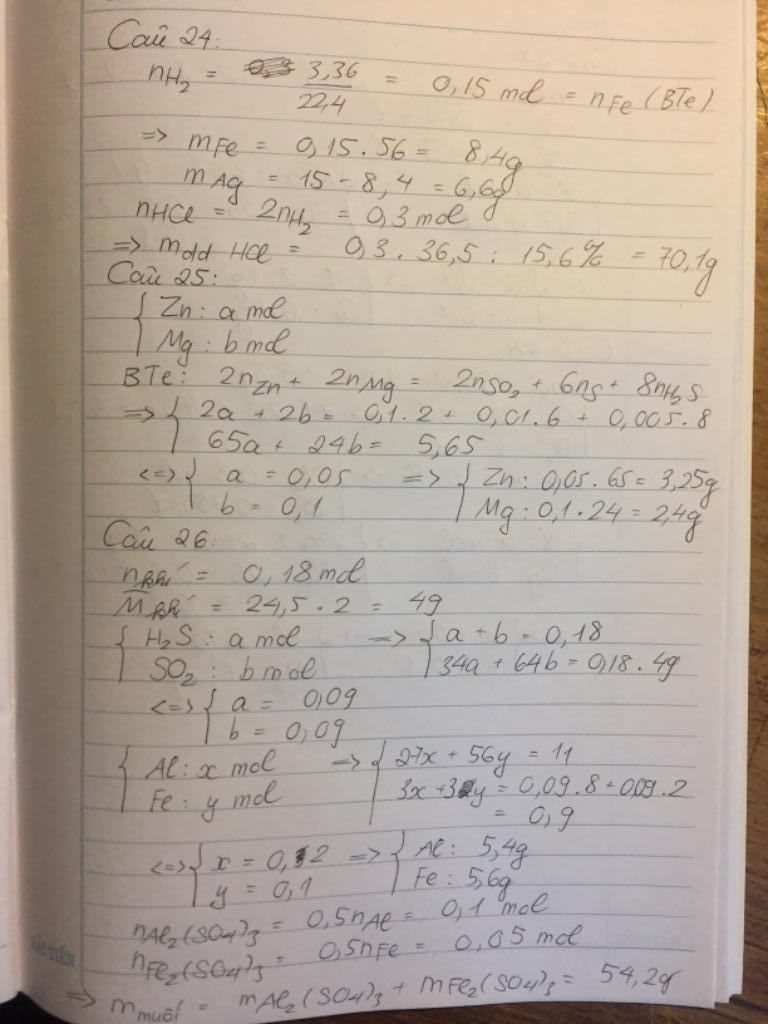 Câu 24:
nH2 = 3,36/22,4 = 0,15 mol = nFe (BTe)
=> mFe = 0,15.56 = 8,4g
mAg = 15 - 8,4 = 6,6g
nHCl = 2nH2 = 0,3 mol
=> mdd HCl = 0,3 . 36,5 : 15,6% = 70,1g
Câu 25:
{ Zn : a mol
{ Mg : b mol
BTe: 2nZn + 2nMg = 2nSO2 + 6nS + 8nH2S
=> { 2a + 2b = 0,1.2 + 0,01.6 + 0,005.8
{ 65a + 24b = 5,65
<=> { a = 0,05 => { Zn : 0,05.65 = 3,25g
{ b = 0,1 { Mg : 0,1.24 = 2,4g
Câu 26:
nkhí = 0,18 mol
M̅khí = 24,5.2 = 49
{ H2S : a mol => { a + b = 0,18
{ SO2 : b mol { 34a + 64b = 0,18.49
<=> { a = 0,09
{ b = 0,09
{ Al : x mol => { 27x + 56y = 11
{ Fe : y mol { 3x + 3y = 0,09.8 + 0,09.2
= 0,9
<=> { x = 0,2 => { Al : 5,4g
{ y = 0,1 { Fe : 5,6g
nAl2(SO4)3 = 0,5nAl = 0,1 mol
nFe2(SO4)3 = 0,5nFe = 0,05 mol
=> mmuối = mAl2(SO4)3 + mFe2(SO4)3 = 54,2g
HẢI TIẾN